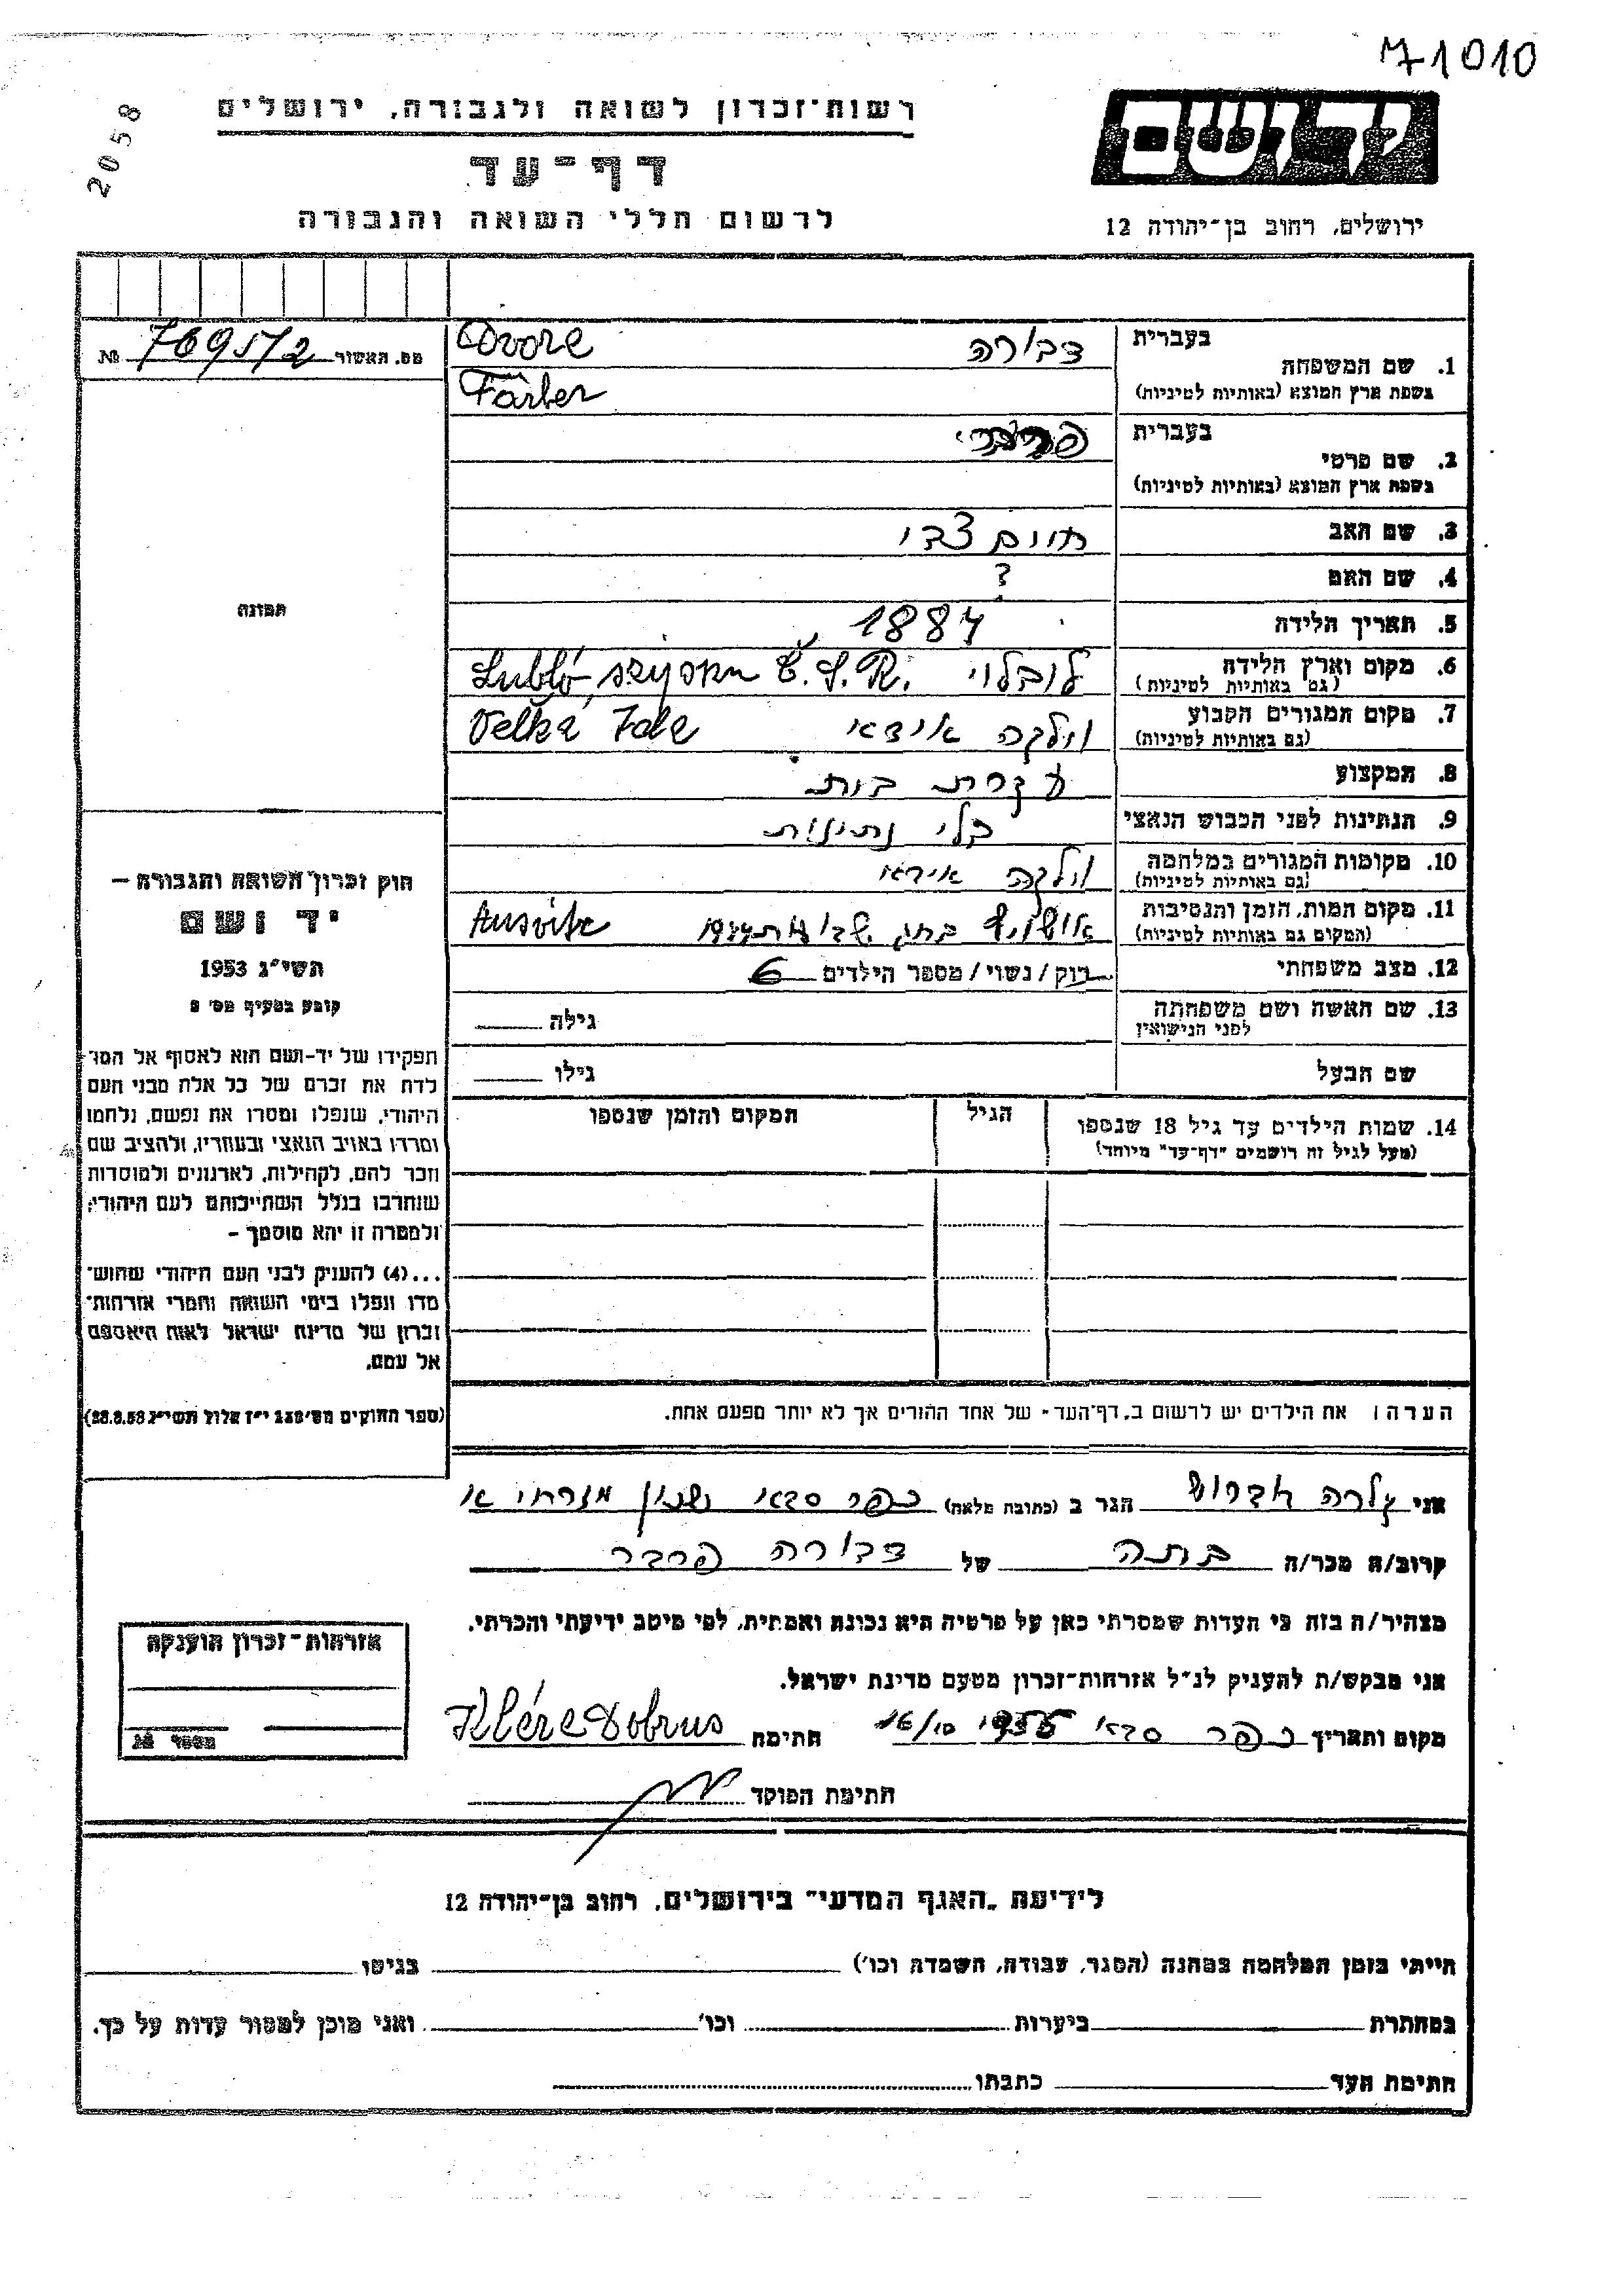 71010
2058
רשות־זכרון לשואה ולגבורה, ירושלים
יד ושם
דף־עד
לרשום חללי השואה והגבורה
ירושלים, רחוב בן־יהודה 12
בעברית
1. שם המשפחה
בשפת ארץ המוצא (באותיות לטיניות)
דבורה
Dvore
Färber
מס. האשור 769572 №
בעברית
2. שם פרטי
בשפת ארץ המוצא (באותיות לטיניות)
3. שם האב
חיים צבי
4. שם האם
?
5. תאריך הלידה
1884
6. מקום וארץ הלידה
(גם באותיות לטיניות)
לובלוי Č.S.R. Lubló
7. מקום המגורים הקבוע
(גם באותיות לטיניות)
וולקה אידא Velká Ida
8. המקצוע
עקרת בית
9. הנתינות לפני הכבוש הנאצי
בלי נתינות
10. מקומות המגורים במלחמה
(גם באותיות לטיניות)
וולקה אידא
11. מקום המות, הזמן והנסיבות
(המקום גם באותיות לטיניות)
אושויץ בחג שבועות Ausvitz
12. מצב משפחתי
רוק/נשוי/מספר הילדים 6
13. שם האשה ושם משפחתה
לפני הנישואין
גילה
שם הבעל
גילו
14. שמות הילדים עד גיל 18 שנספו
(מעל לגיל זה רושמים "דף־עד" מיוחד)
הגיל
המקום והזמן שנספו
הערה: את הילדים יש לרשום ב„דף־העד״ של אחד ההורים אך לא יותר מפעם אחת.
תמונה
חוק זכרון השואה והגבורה –
יד ושם
תשי״ג 1953
קובע בסעיף מס׳ 2
תפקידו של יד־ושם הוא לאסוף אל המו־
לדת את זכרם של כל אלה מבני העם
היהודי, שנפלו ומסרו את נפשם, נלחמו
ומרדו באויב הנאצי ובעוזריו, ולהציב שם
וזכר להם, לקהילות, לארגונים ולמוסדות
שנחרבו בגלל השתייכותם לעם היהודי;
ולמטרה זו יהא מוסמך –
...(4) להעניק לבני העם היהודי שהוש־
מדו ונפלו בימי השואה והמרי אזרחות־
זכרון של מדינת ישראל לאות היאספם
אל עמם.
(ספר החוקים מס׳ 132 י״ז אלול תשי״ג 28.8.53)
אני קלרה דברוש הגר ב (כתובת מלאה) כפר סבא שכון מזרחי א
קרוב/ה מכר/ה בתה של דבורה פרבר
מצהיר/ה בזה כי העדות שמסרתי כאן על פרטיה היא נכונה ואמתית, לפי מיטב ידיעתי והכרתי.
אני מבקש/ת להעניק לנ״ל אזרחות־זכרון מטעם מדינת ישראל.
מקום ותאריך כפר סבא 1955 16/10 חתימה Kláre Dobrus
חתימת הפוקד
אזרחות־זכרון הוענקה
מספר №
לידיעת „האגף המדעי״ בירושלים, רחוב בן־יהודה 12
הייתי בזמן המלחמה במחנה (הסגר, עבודה, השמדה וכו׳) בגיטו
במחתרת ביערות וכו׳ ואני מוכן למסור עדות על כך.
חתימת העד כתבתו